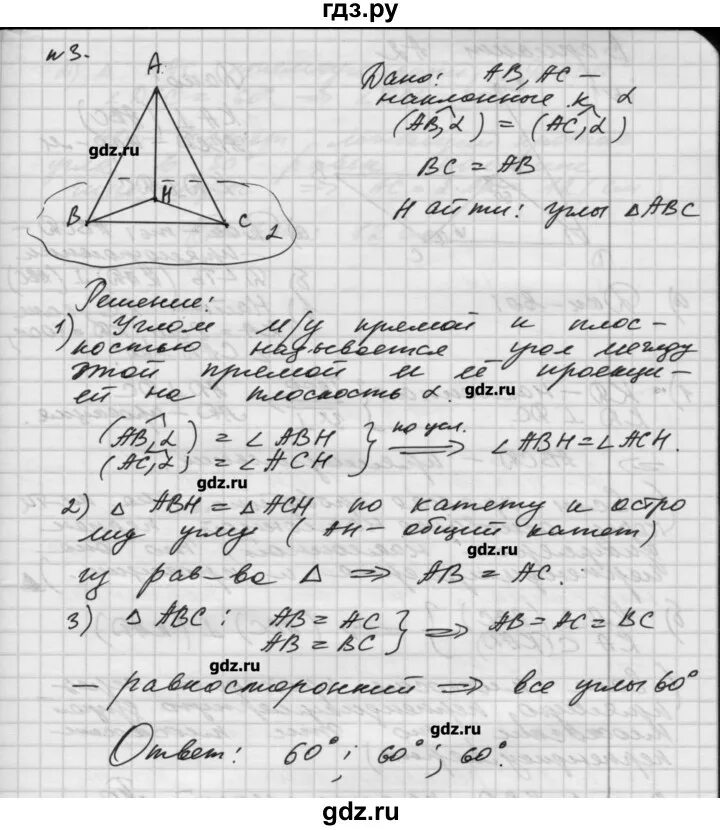 гдз.ру
№3.
A
B
H
C
α
gdz.ru
Дано: AB, AC –
наклонные к α
(AB,^α) = (AC,^α)
BC = AB
Найти: углы △ABC
Решение:
1) Углом м/у прямой и плос-
костью называется угол между
этой прямой и её проекци-
ей на плоскость α.
gdz.ru
(AB,^α) = ∠ABH
(AC,^α) = ∠ACH } по усл. ⟹ ∠ABH = ∠ACH.
gdz.ru
2) △ ABH = △ ACH по катету и остро
му углу ( AH – общий катет)
gdz.ru
из рав-ва △ ⟹ AB = AC.
3) △ ABC : AB = AC
AB = BC } ⟹ AB = AC = BC
gdz.ru
– равносторонний ⟹ все углы 60°
gdz.ru
Ответ: 60°; 60°; 60°.
gdz.ru